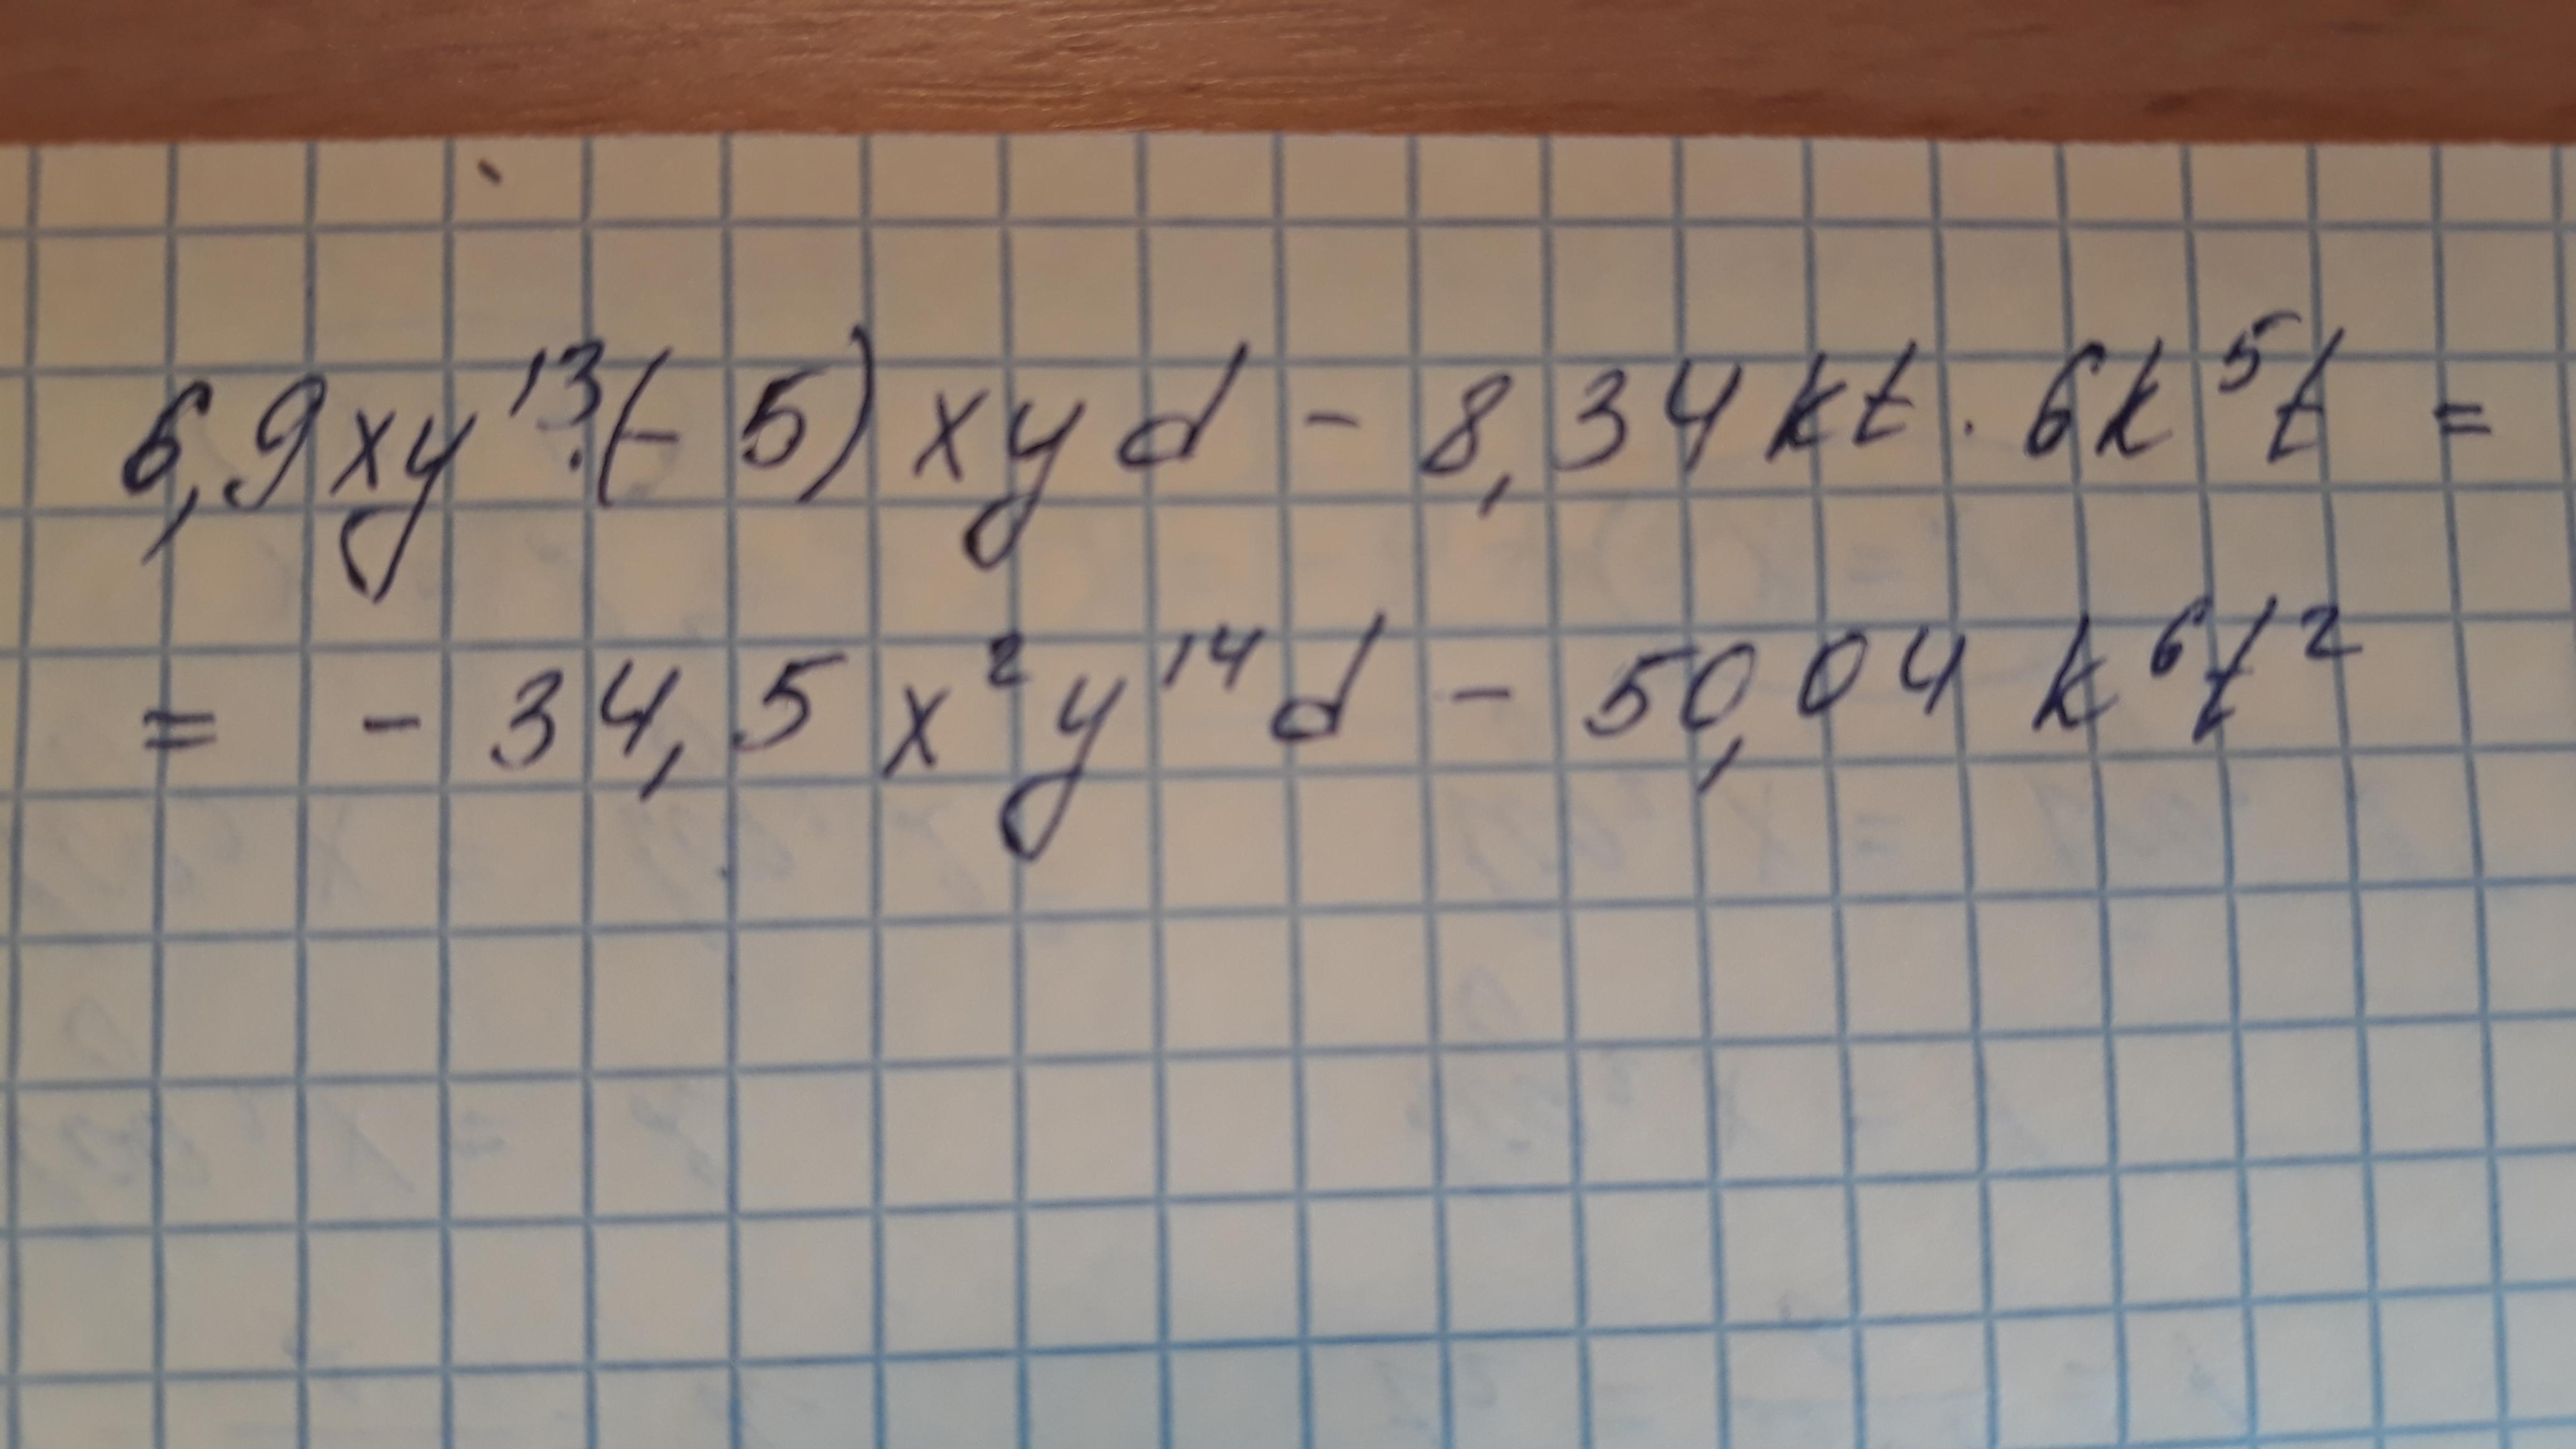 6,9xy¹³·(-5)xyd - 8,34kt · 6k⁵t =
= - 34,5x²y¹⁴d - 50,04 k⁶t²